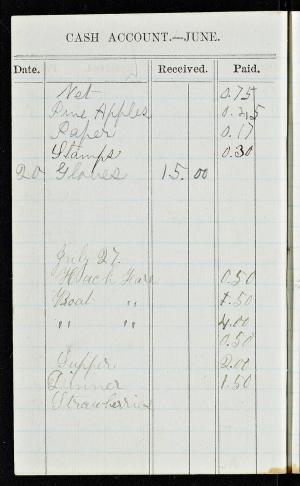 CASH ACCOUNT.—JUNE.
Date. Received. Paid.
Net 0.75
Pine Apples 0.25
Paper 0.17
Stamps 0.30
20 Gloves 15.00
July 27.
Hack Fare 0.50
Boat " 1.50
" " 4.00
0.50
Supper 2.00
Dinner 1.50
Strawberries